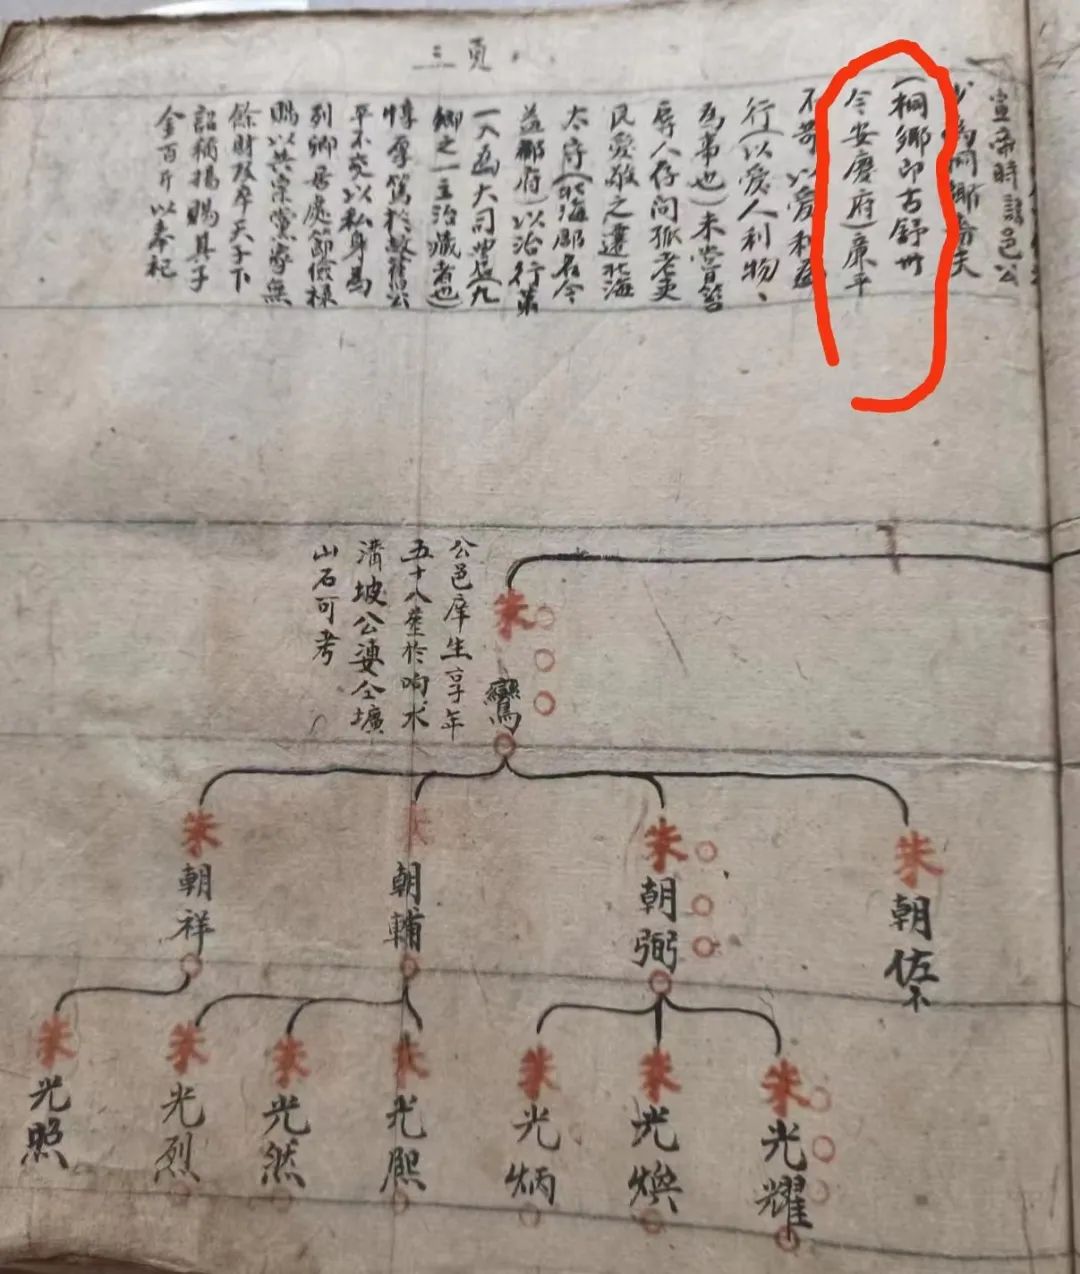 三頁
宣帝時諱邑公
少為桐鄉嗇夫
(桐鄉即古舒州
今安慶府)廉平
不苛以愛利為
行(以愛人利物、
為事也)未嘗笞
辱人存问孤老吏
民愛敬之遷北海
太府(北海郡名今
益都府)以治行第
一入為大司農(九
卿之一主治藏者也)
惇厚篤於故舊公
平不究以私身為
列卿居處節儉祿
賜以共宗黨家無
餘財及卒天子下
詔稱揚賜其子
金百斤以奉祀
朱
鸞
公邑庠生享年
五十八塟於响水
溝坡公婆仝壙
山石可考
朱朝佐
朱朝弼
朱朝輔
朱朝祥
朱光耀
朱光燠
朱光炳
朱光熙
朱光然
朱光烈
朱光照